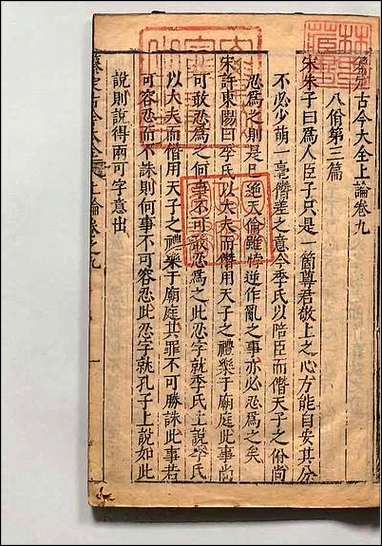 古今大全上論卷九
八佾第三篇
宋朱子曰爲人臣子只是一箇尊君敬上之心方能自安其分
不必少萌一毫僭差之意今季氏以陪臣而僭天子之佾尚
忍爲之則是絶天倫雖悖逆作亂之事亦必忍爲之矣
宋許東陽曰季氏以大夫而僭用天子之禮樂于廟庭此事尚
可敢忍爲之何事不可敢忍爲之此忍字就季氏上說季氏
以大夫而僭用天子之禮樂于廟庭其罪不可勝誅此事若
可容忍而不誅則何事不可容忍此忍字就孔子上說如此
說則說得兩可字意出
古今大全 上論卷之九